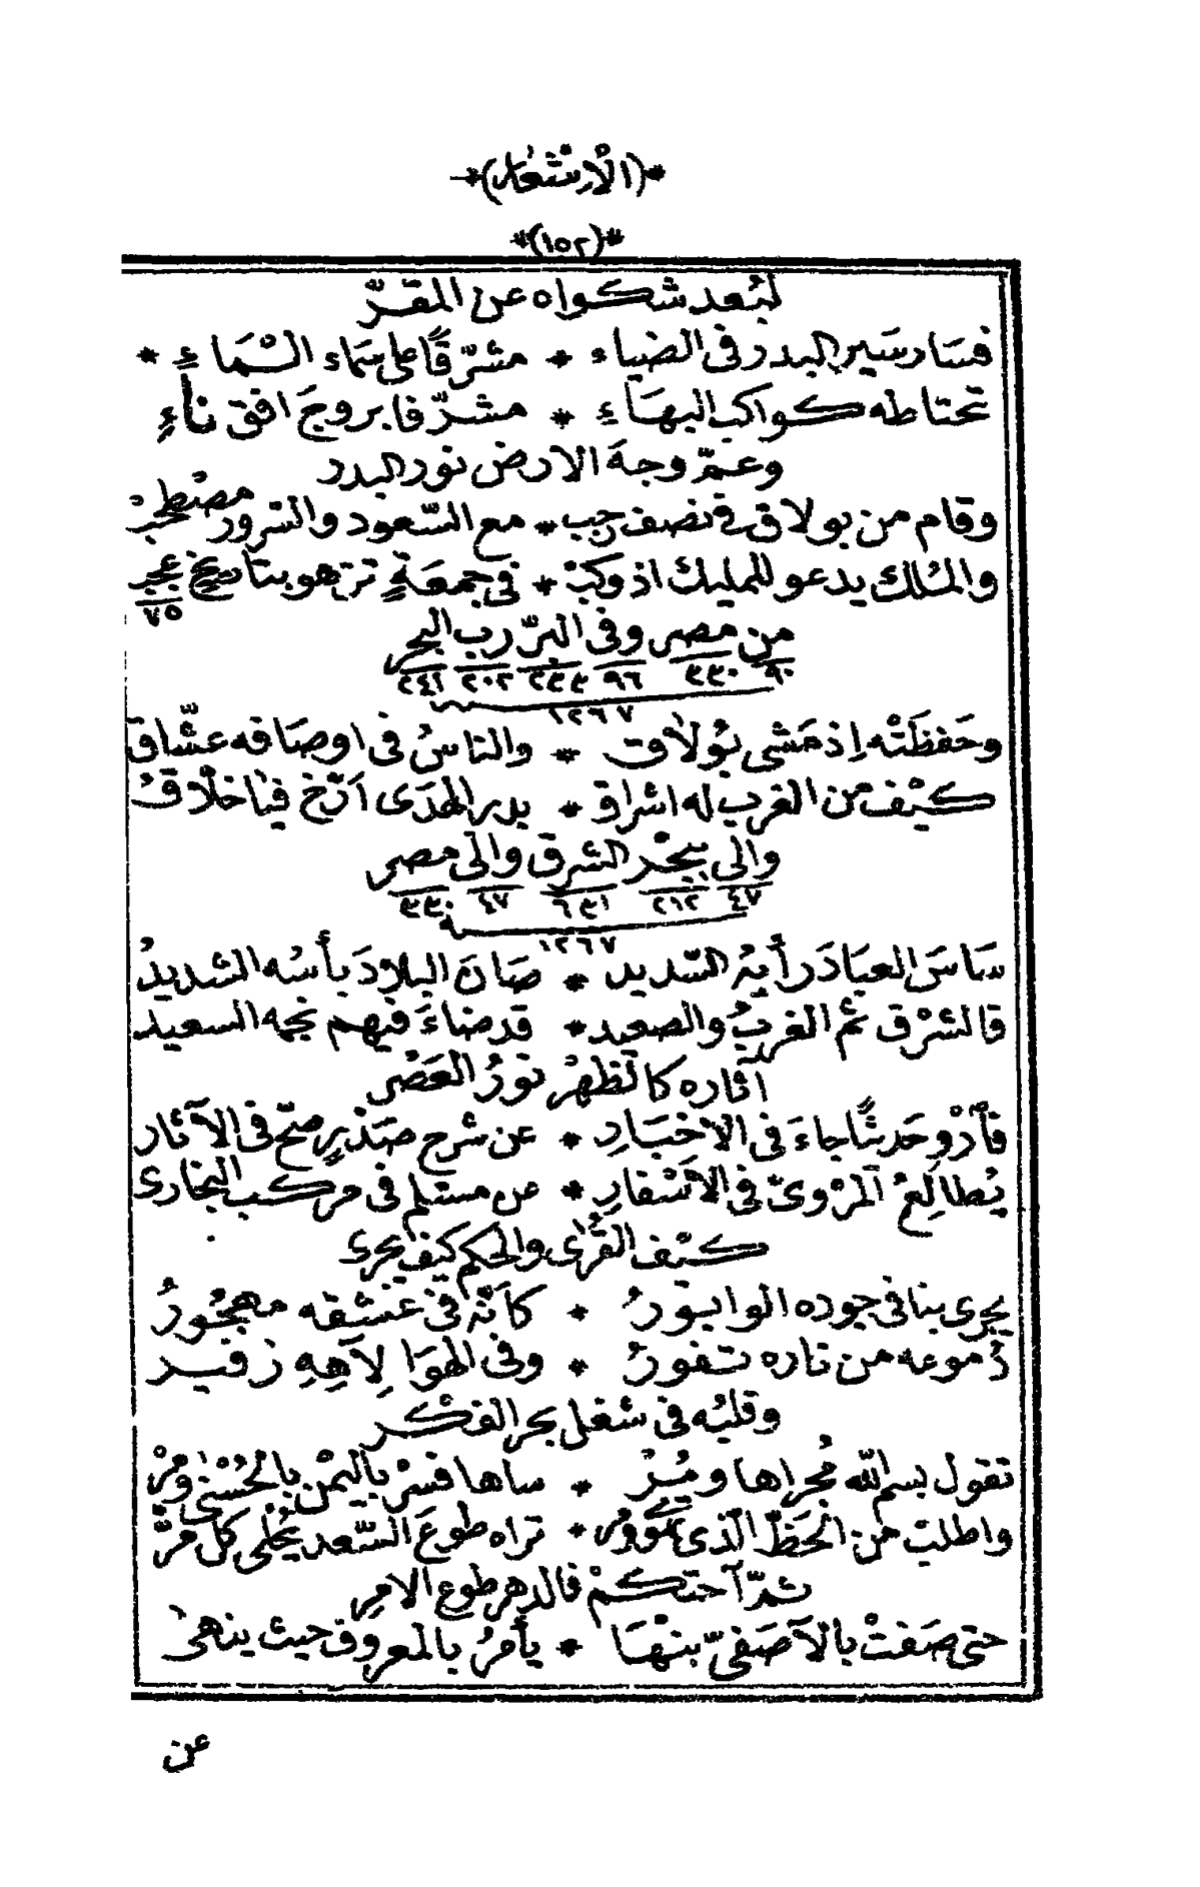 *(الْاَشْعَار)*
*(١٥٢)*
لبُعد شكواه عن المقرّ
فسَار سَير البدر فى الضياء * مشرّقًا على سَماء السْمَاءِ *
تحتاطه كواكب البهَاءِ * مشرّفا بروجَ افق ناءٍ
وعمّ وجهَ الارض نور البدر
وقام من بولاق فى نصف رجب * مع السّعود والسّرور مصْطحبْ
والمُلك يدعو للمليك اذ وكبْ * فى جمعَةٍ تزهو بتأريخ عجب
٧٥
من مصر وفى البرّ رب البحر
٩٠ ٣٣٠ ٩٦ ٢٣٣ ٢٠٢ ٢٤١
١٢٦٧
وحَفظَتْه اِذ مَشى بُولاق * والناسُ فى اوصَافه عشّاق
كيْف من الغرب له اشراق * بدر الهدَى اَرّخ فيا خلّاقُ
والى ببحْر الشرق والى مصر
٤٧ ٢١٢ ٦٣١ ٤٧ ٣٣٠
١٢٦٧
سَاسَ العبَادَ رأيهُ السّديد * صَانَ البلادَ بأسُه الشديدُ
فالشرْق ثم الغربُ والصعيد * قد ضاءَ فيهم نجمه السعيد
آثاره كالظهرْ نورُ العَصْر
فأرْوِ حَديثًا جاءَ فى الاخبَارِ * عن شرح صَدْرٍ صحّ فى الآثار
يُطالِعُ المرْوىّ فى الاسْفارِ * عن مسْلم فى مركب البخارى
كيْف القُرٰى والحكم كيف يجرى
يجرى بنا فى جوده الوابورُ * كأنّه فى عشقه مهجُورُ
دُموعه من ناره تفورُ * وفى الهوَا لِآهِهِ زفير
وقلبُه فى شغل بحر الفكْر
تقول بسم الله مُجراها ومُرْ * ساها فسرْ باليمْن بالحُسْنى ومُرْ
واطلبْ من الحَظّ الّذى * تراه طوعَ السّعد يُحْلى كلّ مرّ
فالدهر طوع الامرِ
حتى صَفتْ بالآصَفىّ بنْهَا * يأمرُ بالمعروف حيث ينهى
عن